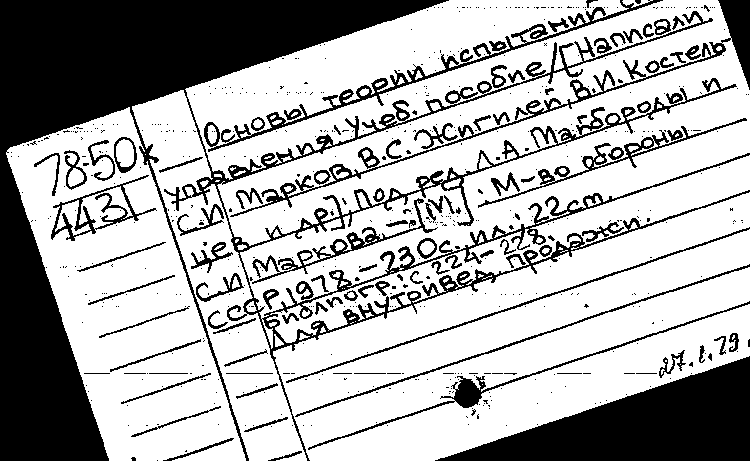 78-50к
4431
Основы теории испытаний
управления: Учеб. пособие / [Написали:
С.И. Марков, В.С. Жигилей, В.И. Костель-
цев и др.]; Под ред. Л.А. Майбороды и
С.И. Маркова. – [М.]: М-во обороны
СССР, 1978. – 230 с. ил.; 22 cm.
Библиогр.: с. 224–228.
Для внутривед. продажи.
27.1.79.